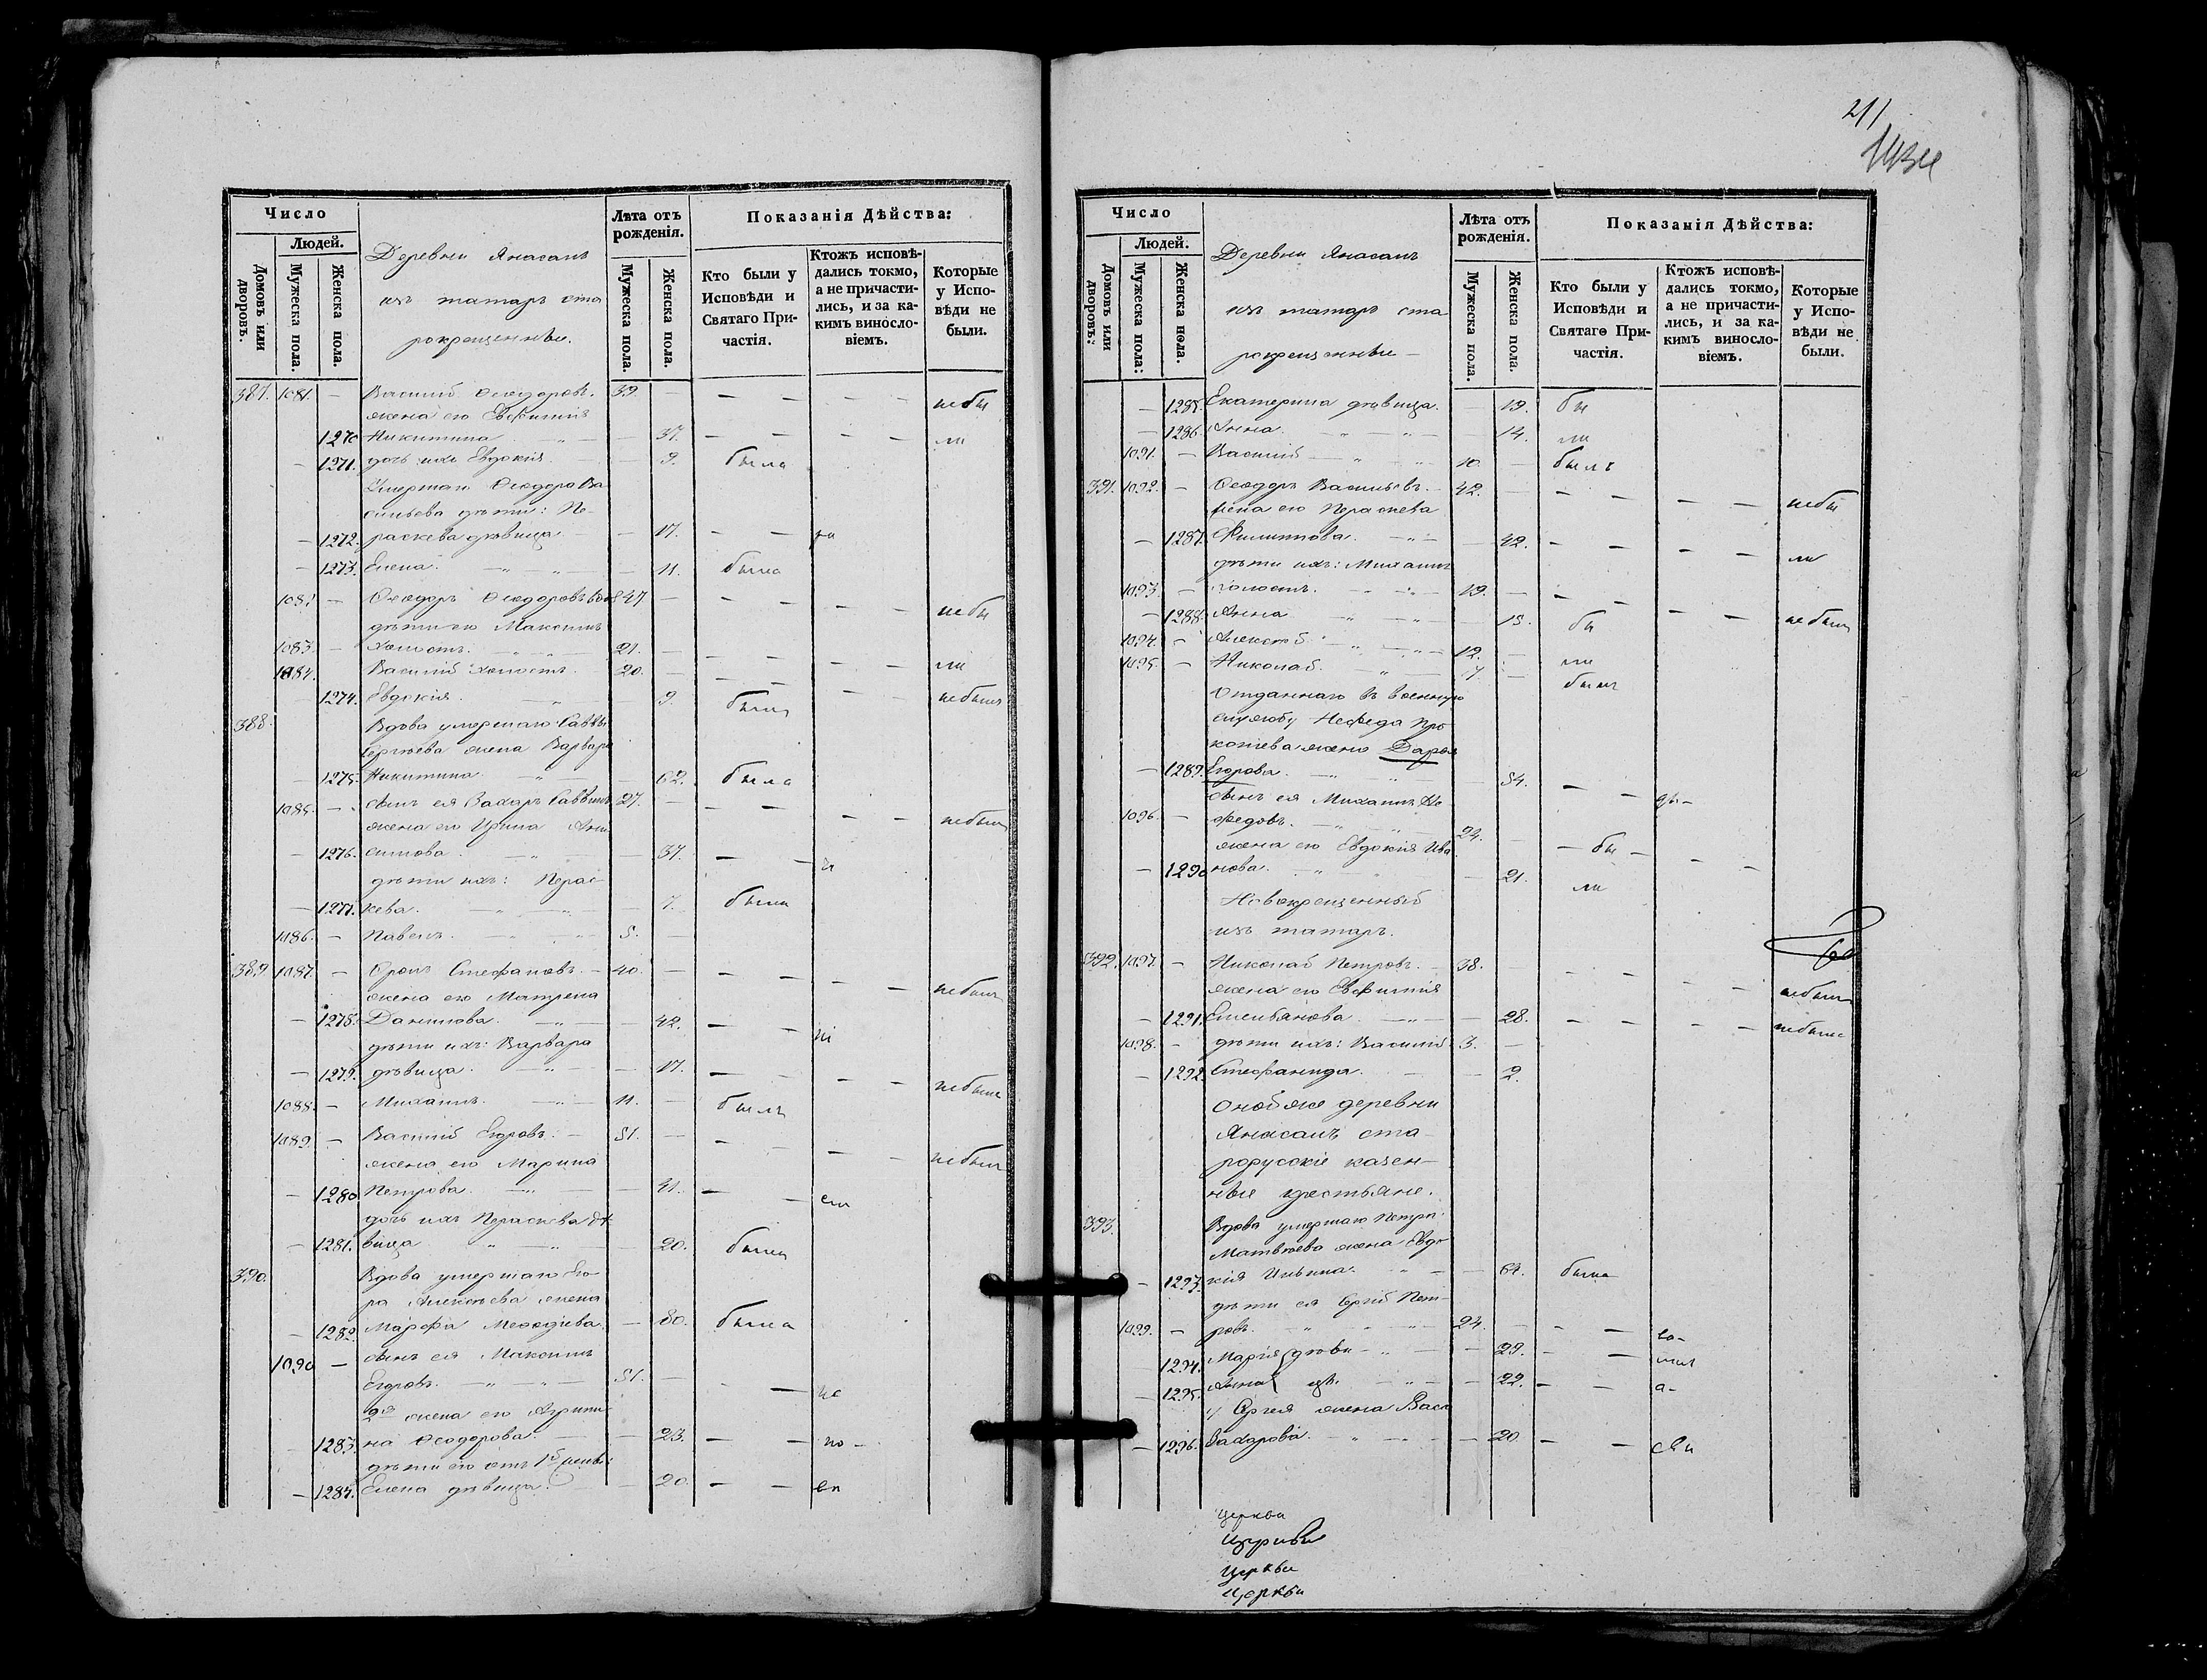 211
Число
Людей.
Домовъ или дворовъ.
Мужеска пола.
Женска пола.
Деревни Янасалъ
изъ татаръ ста
рокрещенные.
Лѣта отъ рожденія.
Мужеска пола.
Женска пола.
Показанія Дѣйства:
Кто были у Исповѣди и Святаго Причастія.
Ктожъ исповѣдались токмо, а не причастились, и за какимъ винословіемъ.
Которые у Исповѣди не были.
387. 1081. — Василій Ѳеодоровъ. 39. — небы
жена его Евфимія
1270 Никитина — 37. ли
— 1271. дочь ихъ Евдокія — 9. была
Умершаго Ѳеодора Ва
сильева дѣти: Пе-
— 1272. раскева дѣвица — 17.
— 1273. Елена. — 11. была
1082 — Ѳеодоръ Ѳеодоровъ 47 — небы
дѣти его Максимъ
1083. — холостъ. 21. — ли
1084. Василій холостъ. 20. — небылъ
1274. Евдокія. — 9. была
388. Вдова умершаго Саввы
Сергѣева жена Варвара
— 1275. Никитина — 62. была
1085. — сынъ ея Захаръ Саввинъ 27. — небылъ
жена его Ирина
— 1276. симова. — 37.
дѣти ихъ: Перас-
— 1277. кева. — 7. была
1086. — Павелъ. 5. —
389 1087. — Стефановъ. 40. — небылъ
жена его Матрена
— 1278. Данилова. — 42.
дѣти ихъ: Варвара
— 1279. дѣвица. — 17. небыла
1088. — Михаилъ. 11. — былъ
1089. — Василій Егоровъ. 51. — небылъ
жена его Марина
— 1280 Петрова. — 41.
дочь ихъ Пераскева дѣ
— 1281. вица — 20. была
390. Вдова умершаго Его-
ра Алексѣева жена
— 1282. Марфа Меѳодіева. — 80. была
1090 — сынъ ея Максимъ
Егоровъ. 51. —
2я жена его Агрипи
— 1283. на Ѳеодорова. — 23.
дѣти его отъ 1й жены:
— 1284. Елена дѣвица. — 20.
Число
Людей.
Домовъ или дворовъ:
Мужеска пола:
Женска пола.
Деревни Янасалъ
изъ татаръ ста
рокрещенные —
Лѣта отъ рожденія.
Мужеска пола.
Женска пола.
Показанія Дѣйства:
Кто были у Исповѣди и Святаго Причастія.
Ктожъ исповѣдались токмо, а не причастились, и за какимъ винословіемъ.
Которые у Исповѣди не были.
— 1285. Екатерина дѣвица. — 19. бы
— 1286. Анна. — 14. ли
1091. — Василій 10. — былъ
391. 1092. — Ѳеодоръ Васильевъ. 42. — небы
жена его Пераскева
— 1287. Филиппова. — 42. ли
дѣти ихъ: Михаилъ
1093. — холостъ. 19. — небылъ
— 1288. Анна — 15. бы
1094. — Алексѣй 12. — ли
1095. — Николай. 7 — былъ
Отданнаго въ военную
службу Нефеда Про
копьева жена Дарья
— 1289. Егорова. — 54.
сынъ ея Михаилъ Не
1096. — федовъ. 24. — бы —
жена его Евдокія Ива
— 1290 нова. — 21. ли
Новокрещенный
изъ татаръ.
392. 1097. — Николай Петровъ. 38. — небылъ
жена его Евфимія
— 1291. Емельянова. — 28. небыла
1098. — дѣти ихъ: Василій 3. —
— 1292. Стефанида. — 2.
Оной же деревни
Янасалъ ста-
рорусскіе казен-
ные крестьяне.
393. Вдова умершаго Петра
Матвѣева жена Евдо
— 1293. кія Ильина. — 64. была
дѣти ея Сергій Пет-
1099. — ровъ. 24. —
— 1294. Марія дѣви — 29.
— 1295. Анна цы. — 22.
у Сергея жена Васс
— 1296. Захарова. — 20.
Церкви
Церкви
Церкви
Церкви